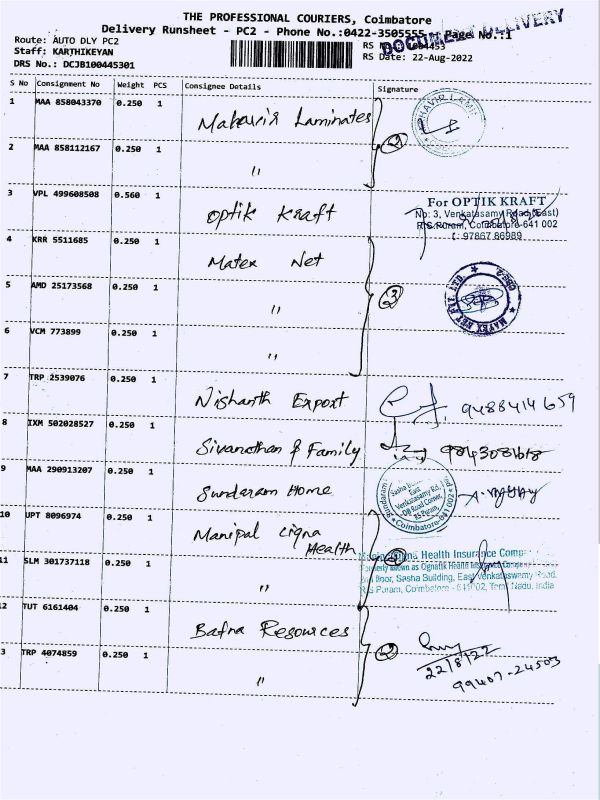 THE PROFESSIONAL COURIERS, Coimbatore
Delivery Runsheet - PC2 - Phone No.:0422-3505555 Page No.:1
DOCUMENT DELIVERY
Route: AUTO DLY PC2
Staff: KARTHIKEYAN
RS Date: 22-Aug-2022
DRS No.: DCJB100445301
S No Consignment No Weight PCS Consignee Details Signature
1 MAA 858043370 0.250 1 Mahavir Laminates
2 MAA 858112167 0.250 1 "
2
3 VPL 499608508 0.560 1 Optik Kraft
For OPTIK KRAFT
No: 3, Venkatasamy Road (East)
R.S.Puram, Coimbatore-641 002
97867 86989
4 KRR 5511685 0.250 1 Matex Net
5 AMD 25173568 0.250 1 "
3
6 VCM 773899 0.250 1 "
7 TRP 2539076 0.250 1 Nishanth Export 9488414659
8 IXM 502028527 0.250 1 Sivanathan & Family
9 MAA 290913207 0.250 1 Sundaram Home
East
Venkatasamy Rd.,
Coimbatore-641 002
10 UPT 8096974 0.250 1 Manipal Cigna Health
Health Insurance Comp
Door, Sasha Building, East Venkataswamy Road,
R.S Puram, Coimbatore - 641 002, Tamil Nadu, India
11 SLM 301737118 0.250 1 "
12 TUT 6161404 0.250 1 Bafna Resources
2
22/8/22
99407-24503
3 TRP 4074859 0.250 1 "